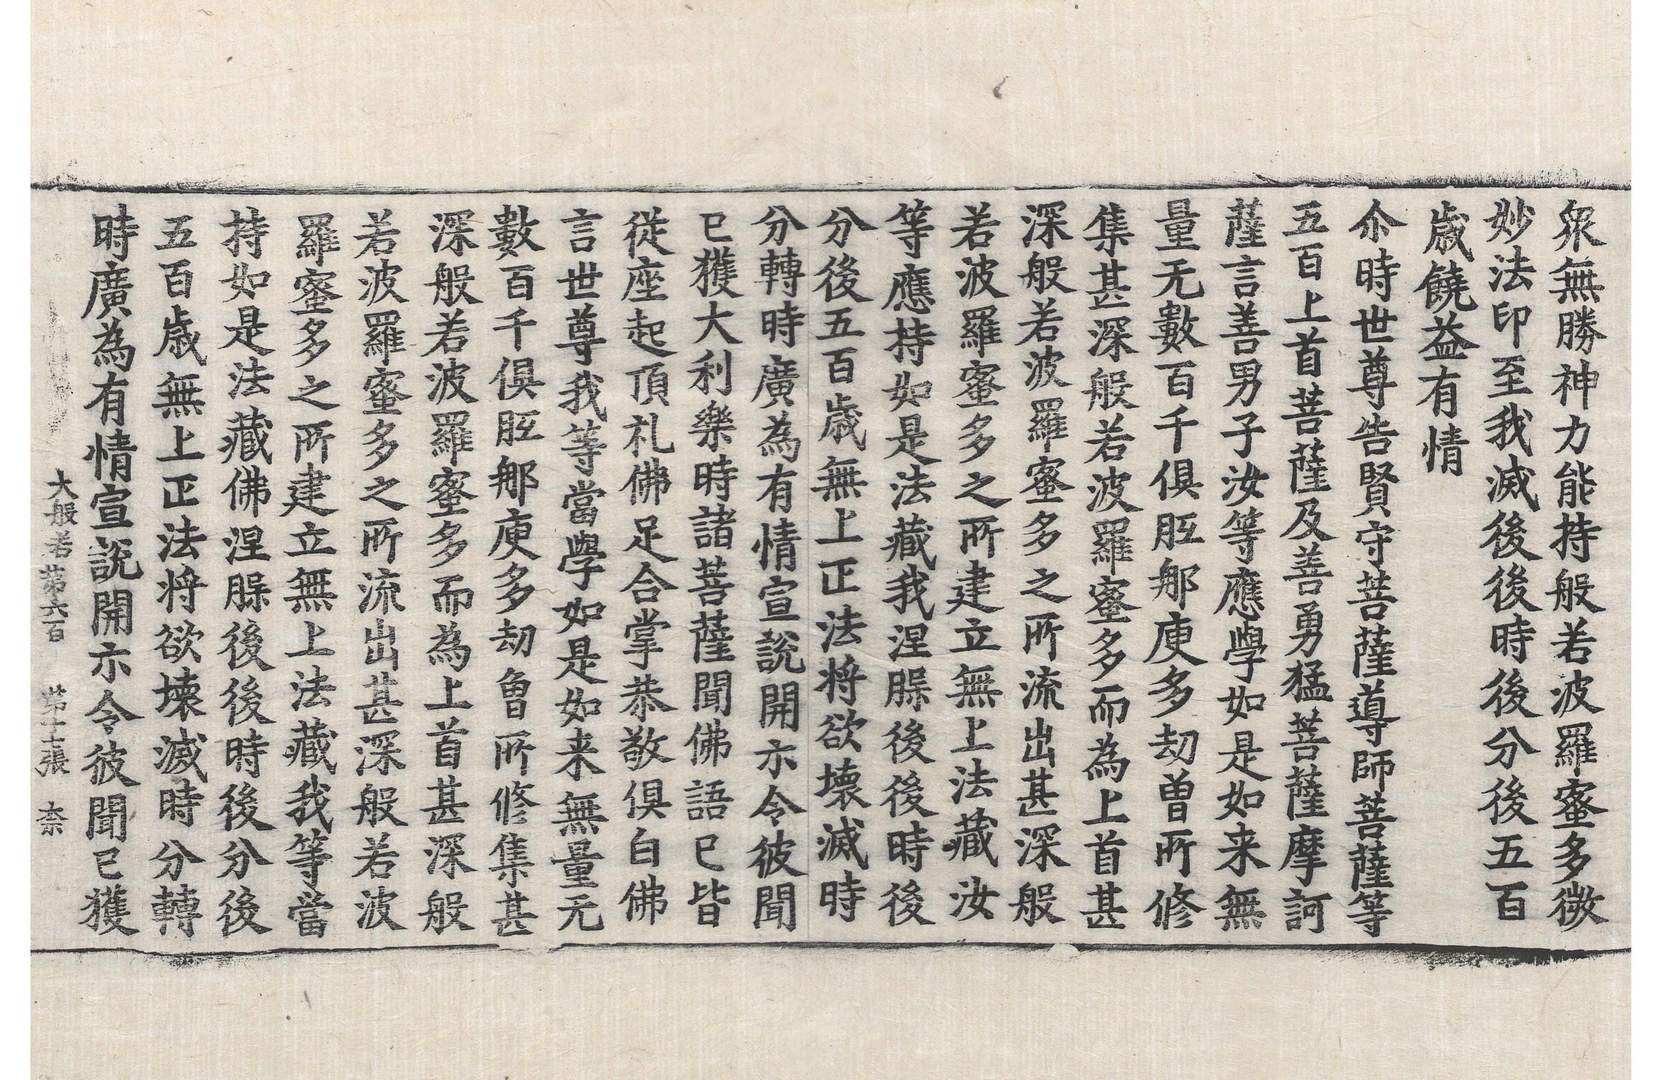 衆無勝神力能持般若波羅蜜多微
妙法印至我滅後後時後分後五百
歲饒益有情
尒時世尊告賢守菩薩導師菩薩等
五百上首菩薩及善勇猛菩薩摩訶
薩言善男子汝等應學如是如来無
量无數百千俱胝那庾多劫曽所修
集甚深般若波羅蜜多而為上首甚
深般若波羅蜜多之所流出甚深般
若波羅蜜多之所建立無上法藏汝
等應持如是法藏我涅槃後後時後
分後五百歲無上正法將欲壞滅時
分轉時廣為有情宣說開示令彼聞
已獲大利樂時諸菩薩聞佛語已皆
從座起頂礼佛足合掌恭敬俱白佛
言世尊我等當學如是如来無量无
數百千俱胝那庾多劫曽所修集甚
深般若波羅蜜多而為上首甚深般
若波羅蜜多之所流出甚深般若波
羅蜜多之所建立無上法藏我等當
持如是法藏佛涅槃後後時後分後
五百歲無上正法將欲壞滅時分轉
時廣為有情宣說開示令彼聞已獲
大般若第六百 第十七張 柰